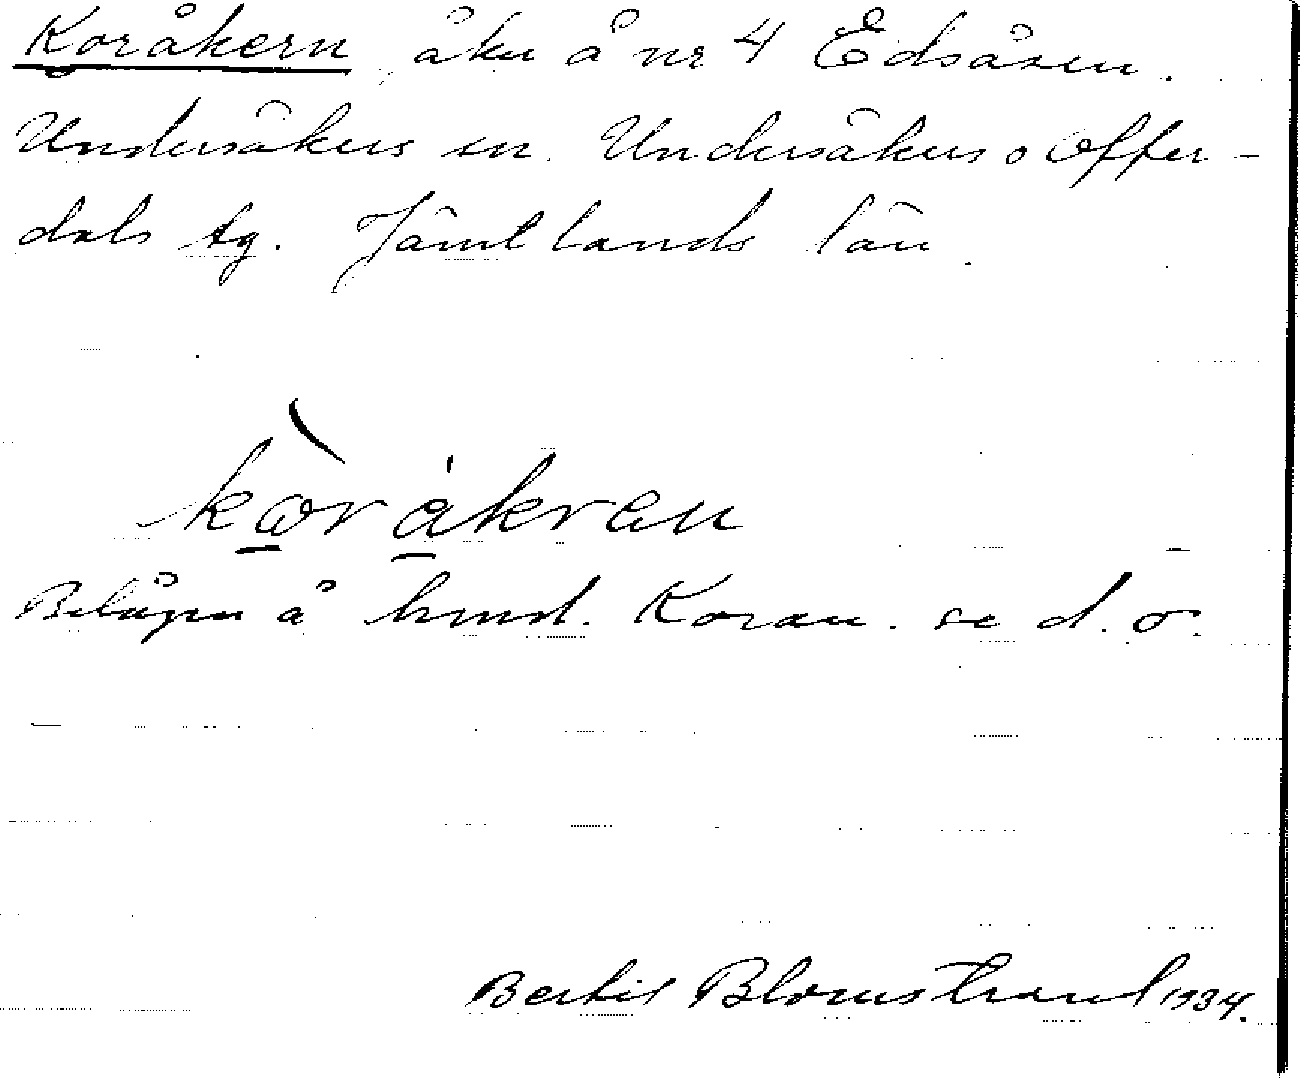 Koråkern åker å nr 4 Edsåsen.
Undersåkers sn. Undersåkers o Offer-
dals tg. Jämtlands län.
kòråkran
Belägen å hmd. Koran. se d. o.
Bertil Blomstrand 1934.